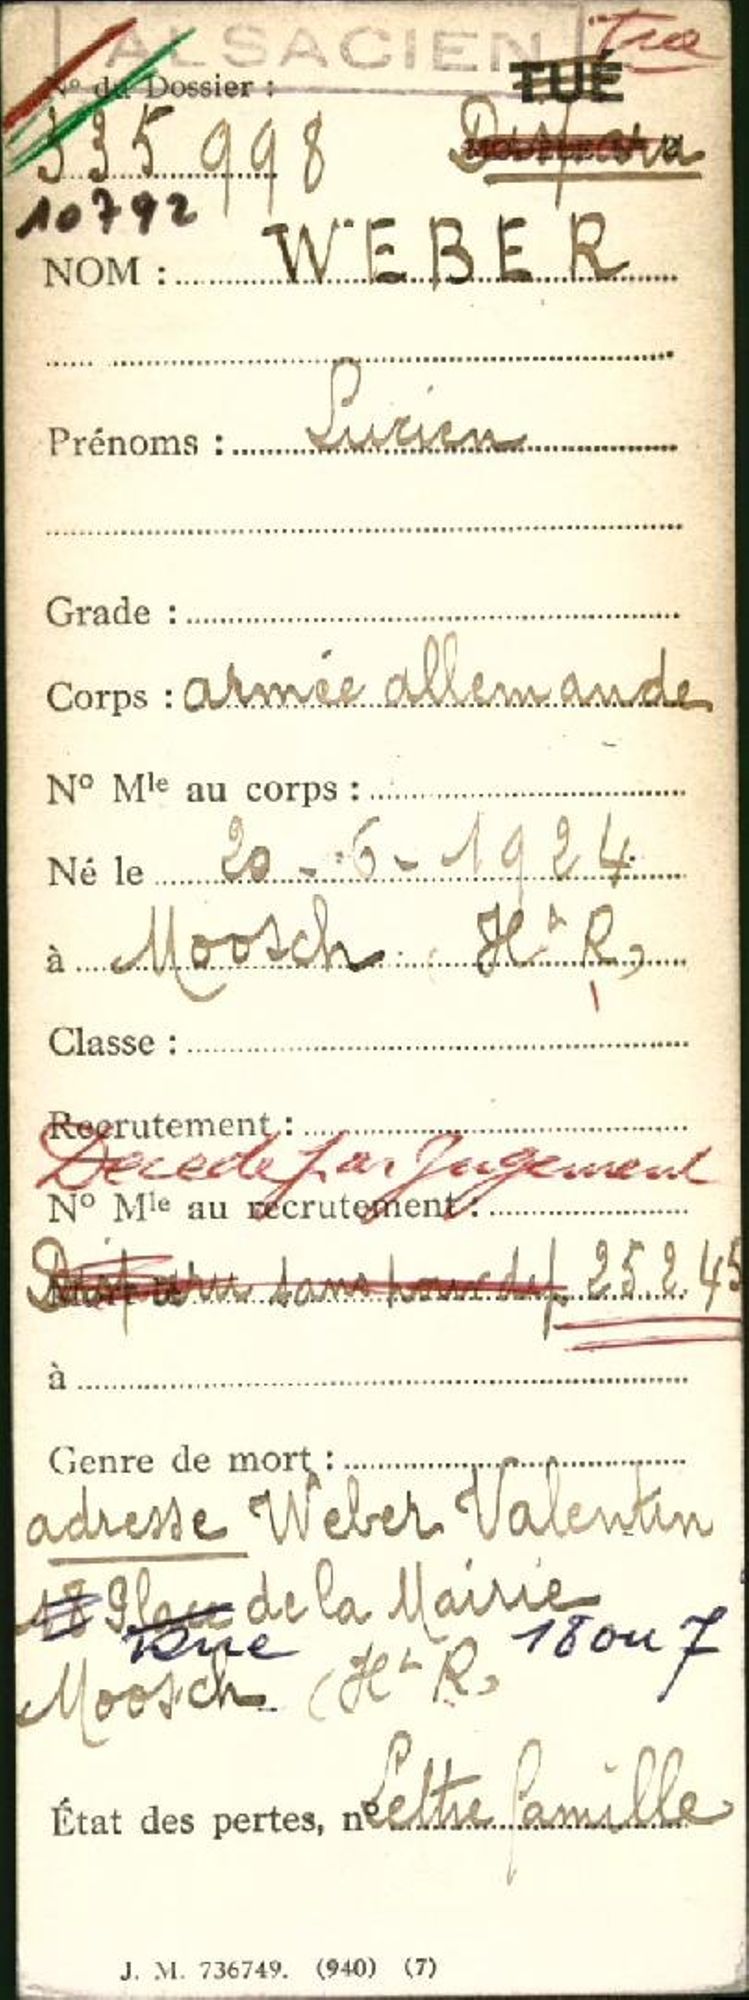 ALSACIEN
TUÉ
N° du Dossier :
335 998 Disparu
10792
NOM : WEBER
Prénoms : Lucien
Grade :
Corps : armée allemande
N° Mle au corps :
Né le 20-6-1924
à Moosch Ht R,
Classe :
Recrutement :
Décédé par Jugement
N° Mle au recrutement :
Disparu sans 25.2.45
à
Genre de mort :
adresse Weber Valentin
18 Place de la Mairie
Rue 18 ou 7
Moosch (Ht R,
État des pertes, n° Lettre famille
J. M. 736749. (940) (7)